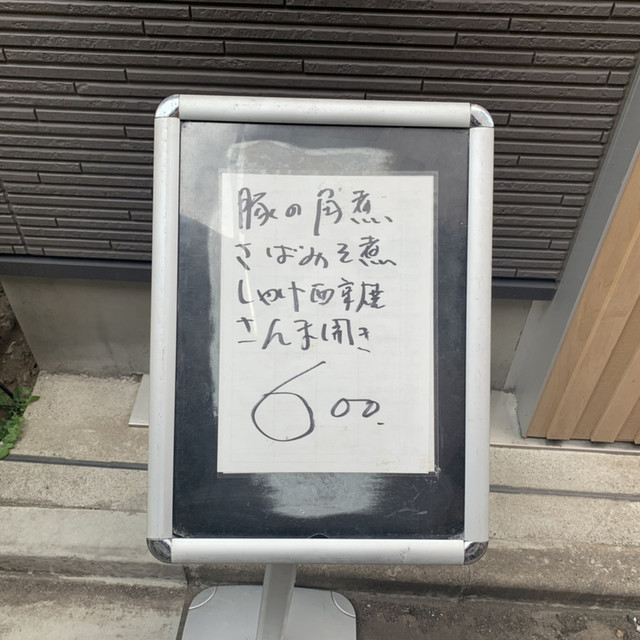 豚の角煮
さばみそ煮
しゃけ西京漬
さんま開き
600.